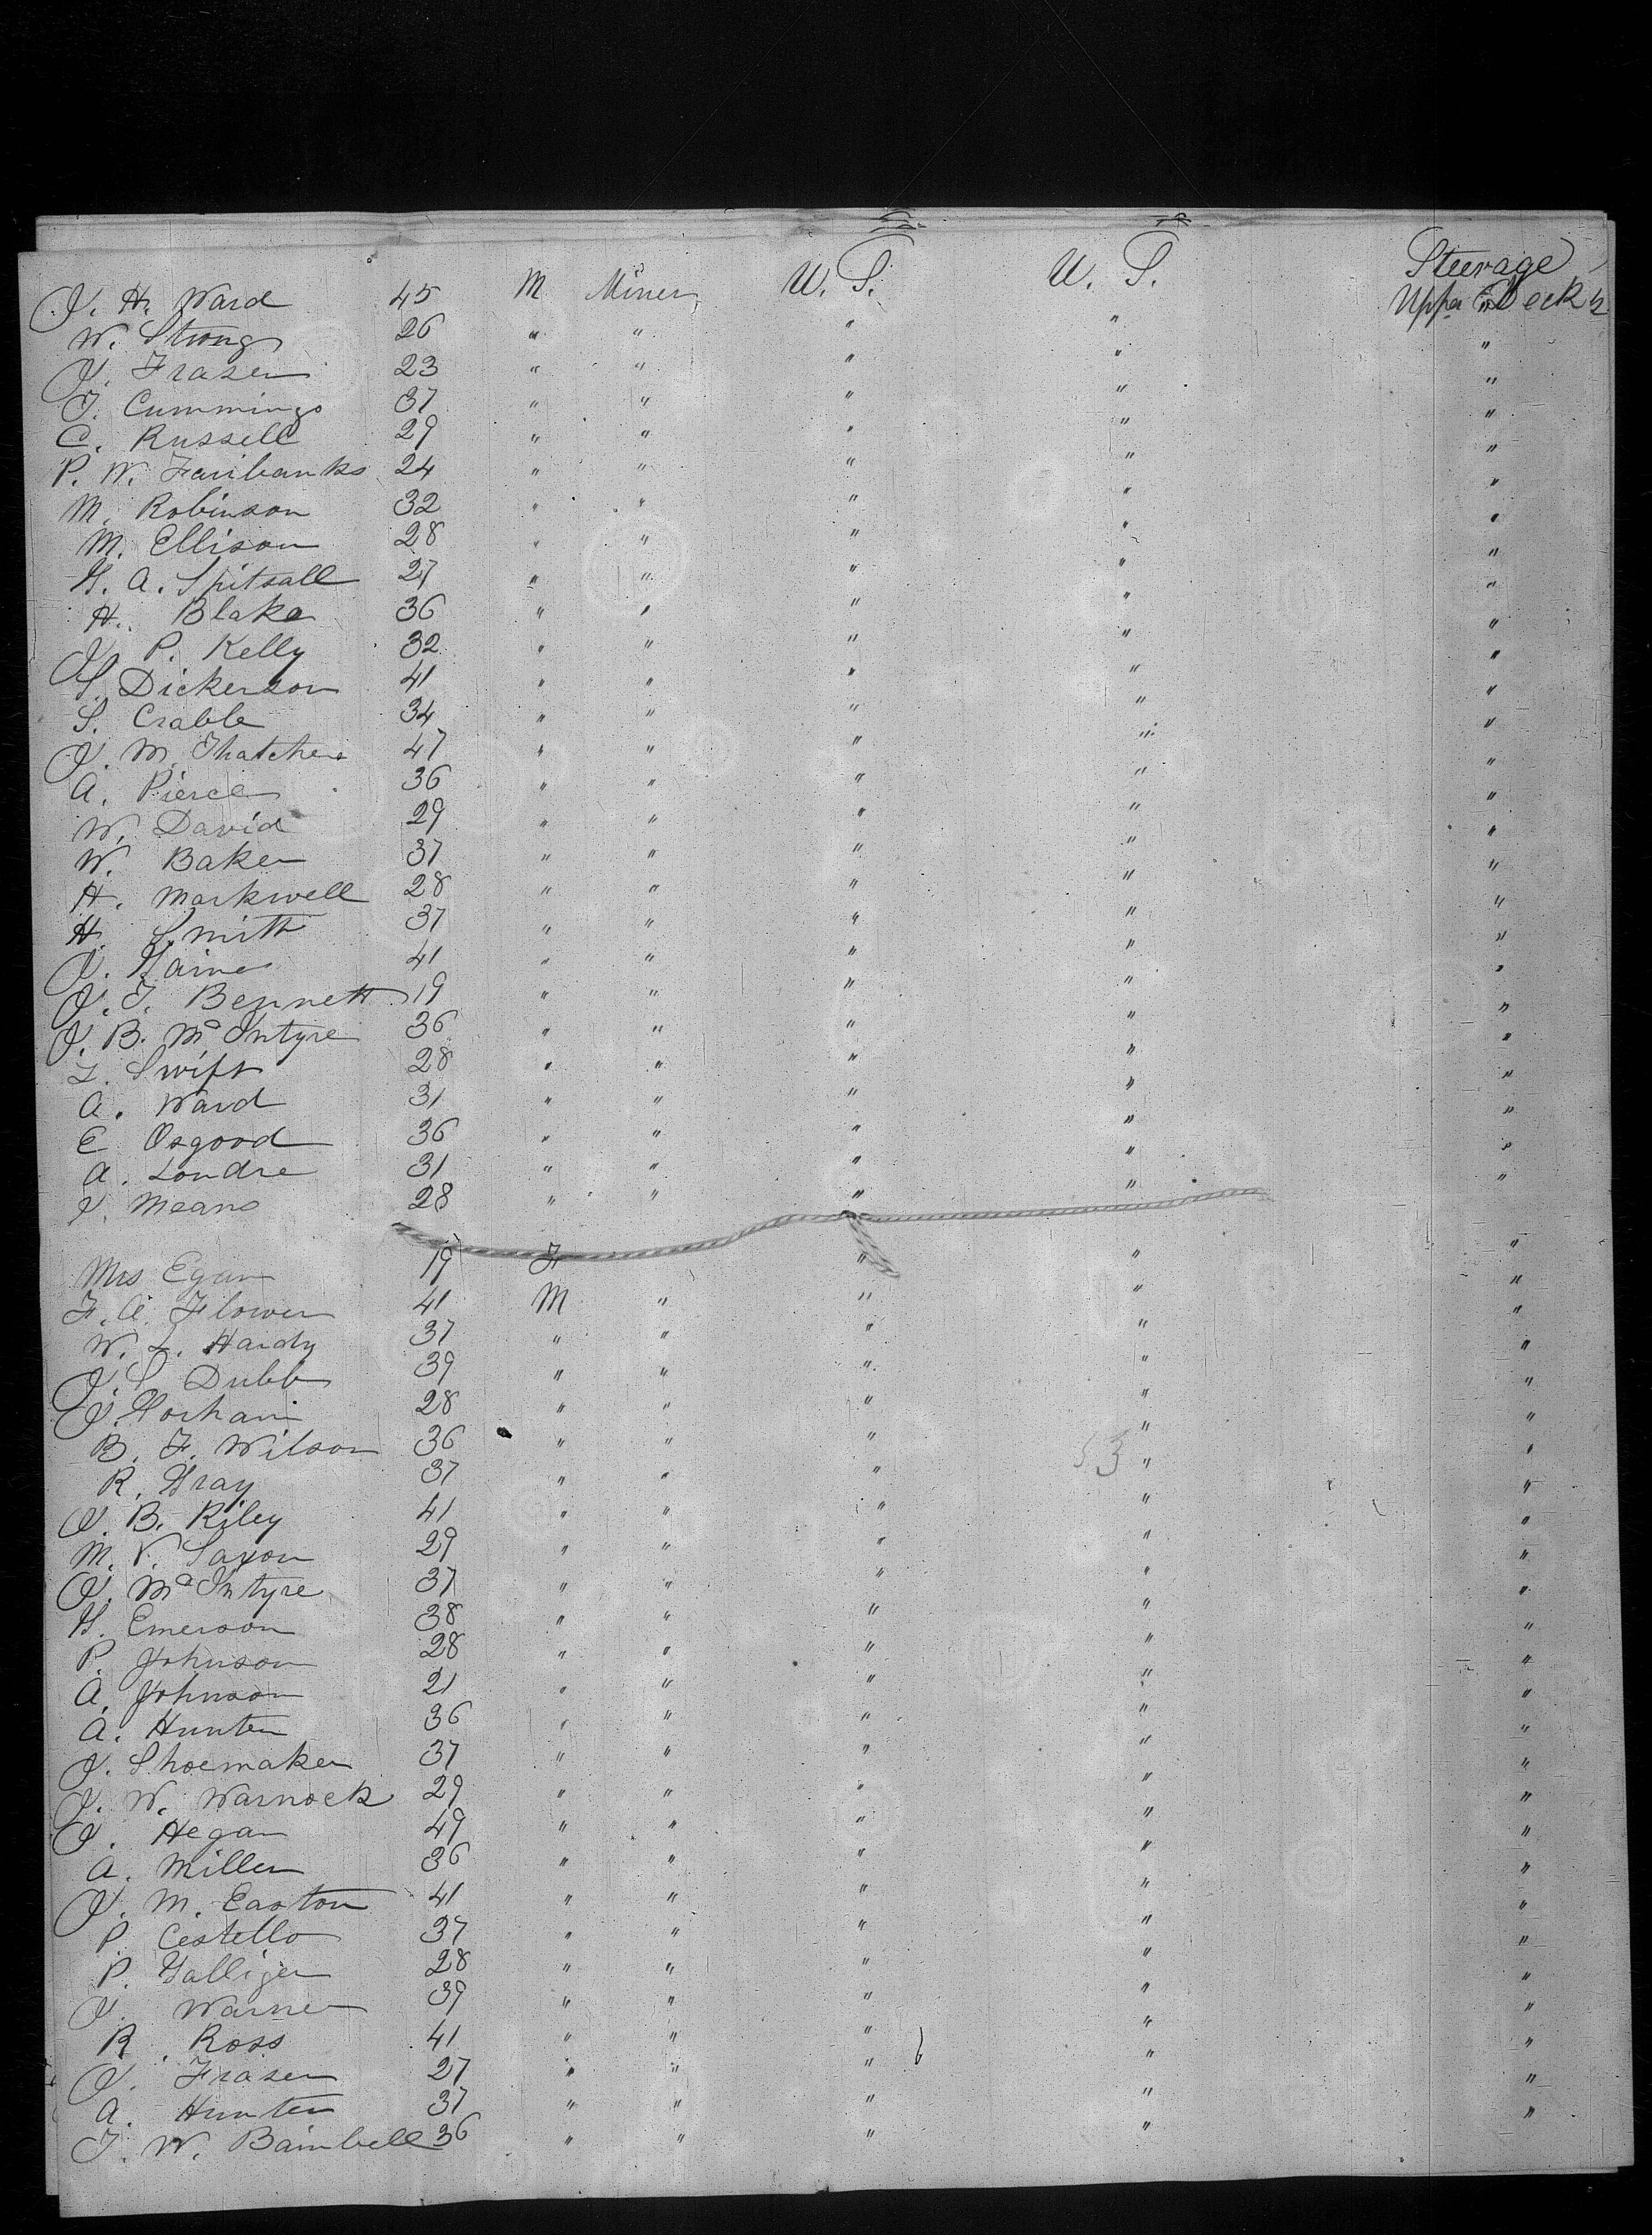 J. H. Ward 45 M Miner U. S. U. S. Steerage
Upper Deck
W. Strong 26 " " " " "
J. Fraser 23 " " " " "
T. Cummings 37 " " " " "
C. Russell 29 " " " " "
P. W. Fairbanks 24 " " " " "
M. Robinson 32 " " " " "
M. Ellison 28 " " " " "
G. A. Spitsall 27 " " " " "
H. Blake 36 " " " " "
J. P. Kelly 32 " " " " "
S. Dickerson 41 " " " " "
S. Crabb 34 " " " " "
J. M. Thatcher 47 " " " " "
A. Pierce 36 " " " " "
W. David 29 " " " " "
W. Baker 37 " " " " "
H. Markwell 28 " " " " "
H. Smith 37 " " " " "
J. Gaines 41 " " " " "
J. T. Bennett 19 " " " " "
J. B. McIntyre 36 " " " " "
L. Swift 28 " " " " "
A. Ward 31 " " " " "
E Osgood 36 " " " " "
A. Londre 31 " " " " "
J. Means 28 " " " " "
Mrs Egan 19 F " " "
F. A. Flower 41 M " " " "
W. L. Hardy 37 " " " " "
J. S Dubb 39 " " " " "
J. Gorham 28 " " " " "
B. F. Wilson 36 " " " " "
R. Gray 37 " " " 53 " "
J. B. Riley 41 " " " " "
M. V. Saxon 29 " " " " "
J. McIntyre 37 " " " " "
G. Emerson 38 " " " " "
P. Johnson 28 " " " " "
A. Johnson 21 " " " " "
A. Hunter 36 " " " " "
J. Shoemaker 37 " " " " "
J. W. Warnock 29 " " " " "
J. Hegan 49 " " " " "
A. Miller 36 " " " " "
J. M. Easton 41 " " " " "
P. Costello 37 " " " " "
P. Galliger 28 " " " " "
J. Warner 39 " " " " "
R. Ross 41 " " " " "
J. Fraser 27 " " " " "
A. Hunter 37 " " " " "
T. W. Baimbell 36 " " " "